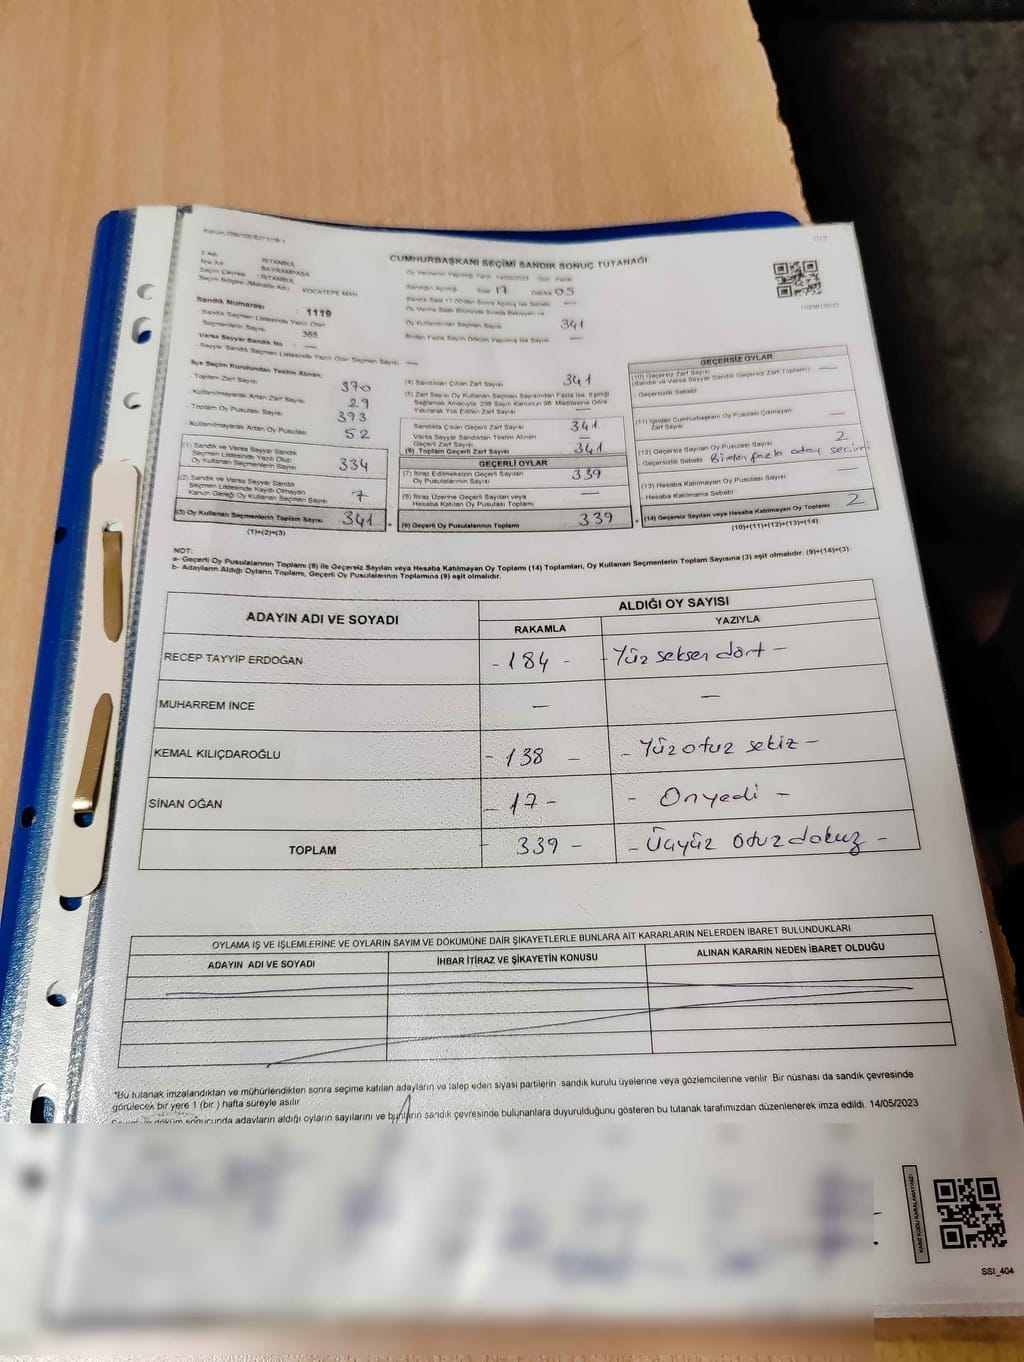 CUMHURBAŞKANI SEÇİMİ SANDIK SONUÇ TUTANAĞI
İli : İSTANBUL
İlçe Adı : BAYRAMPAŞA
Seçim Çevresi : İSTANBUL
Seçim Bölgesi (Mahalle Adı) : KOCATEPE MAH.
Sandık Numarası : 1119
Sandık Seçmen Listesinde Yazılı Olan
Seçmenlerin Sayısı : 365
Varsa Seyyar Sandık No : —
Seyyar Sandık Seçmen Listesinde Yazılı Olan Seçmen Sayısı : —
Saat 17 Dakika 05
Oy Kullandırılan Seçmen Sayısı 341
İlçe Seçim Kurulundan Teslim Alınan:
- Toplam Zarf Sayısı 370
- Kullanılmayarak Artan Zarf Sayısı 29
- Toplam Oy Pusulası Sayısı 393
- Kullanılmayarak Artan Oy Pusulası 52
(1) Sandık ve Varsa Seyyar Sandık
Seçmen Listesinde Yazılı Olup
Oy Kullanan Seçmenlerin Sayısı 334
(2) Sandık ve Varsa Seyyar Sandık
Seçmen Listelerinde Kaydı Olmayan
Kanun Gereği Oy Kullanan Seçmen Sayısı 7
(3) Oy Kullanan Seçmenlerin Toplam Sayısı 341
(1)+(2)=(3)
(4) Sandıktan Çıkan Zarf Sayısı 341
(5) Zarf Sayısı Oy Kullanan Seçmen Sayısından Fazla İse, Eşitliği
Sağlamak Amacıyla, 298 Sayılı Kanunun 98. Maddesine Göre
Yakılarak Yok Edilen Zarf Sayısı —
Sandıkta Çıkan Geçerli Zarf Sayısı 341
Varsa Seyyar Sandıktan Teslim Alınan
Geçerli Zarf Sayısı —
(6) Toplam Geçerli Zarf Sayısı 341
GEÇERLİ OYLAR
(7) İtiraz Edilmeksizin Geçerli Sayılan
Oy Pusulalarının Sayısı 339
(8) İtiraz Üzerine Geçerli Sayılan veya
Hesaba Katılan Oy Pusulası Toplamı —
(9) Geçerli Oy Pusulalarının Toplamı 339
GEÇERSİZ OYLAR
(10) Geçersiz Zarf Sayısı
(Sandık ve Varsa Seyyar Sandık Geçersiz Zarf Toplamı) —
Geçersizlik Sebebi
(11) İçinden Cumhurbaşkanı Oy Pusulası Çıkmayan
Zarf Sayısı —
(12) Geçersiz Sayılan Oy Pusulası Sayısı 2
- Geçersizlik Sebebi Birden fazla aday seçimi
(13) Hesaba Katılmayan Oy Pusulası Sayısı —
- Hesaba Katılmama Sebebi
(14) Geçersiz Sayılan veya Hesaba Katılmayan Oy Toplamı 2
(10)+(11)+(12)+(13)=(14)
NOT:
a- Geçerli Oy Pusulalarının Toplamı (9) ile Geçersiz Sayılan veya Hesaba Katılmayan Oy Toplamı (14) Toplamları, Oy Kullanan Seçmenlerin Toplam Sayısına (3) eşit olmalıdır. (9)+(14)=(3)
b- Adayların Aldığı Oyların Toplamı, Geçerli Oy Pusulalarının Toplamına (9) eşit olmalıdır.
ADAYIN ADI VE SOYADI ALDIĞI OY SAYISI
RAKAMLA YAZIYLA
RECEP TAYYİP ERDOĞAN - 184 - - Yüz seksen dört -
MUHARREM İNCE — —
KEMAL KILIÇDAROĞLU - 138 - - Yüz otuz sekiz -
SİNAN OĞAN - 17 - - Onyedi -
TOPLAM - 339 - - Üçyüz otuz dokuz -
OYLAMA İŞ VE İŞLEMLERİNE VE OYLARIN SAYIM VE DÖKÜMÜNE DAİR ŞİKAYETLERLE BUNLARA AİT KARARLARIN NELERDEN İBARET BULUNDUKLARI
ADAYIN ADI VE SOYADI İHBAR İTİRAZ VE ŞİKAYETİN KONUSU ALINAN KARARIN NEDEN İBARET OLDUĞU
*Bu tutanak imzalandıktan ve mühürlendikten sonra seçime katılan adayların ve talep eden siyasi partilerin sandık kurulu üyelerine veya gözlemcilerine verilir. Bir nüshası da sandık çevresinde
görülecek bir yere 1 (bir) hafta süreyle asılır.
sonucunda adayların aldığı oyların sayılarını ve bunların sandık çevresinde bulunanlara duyurulduğunu gösteren bu tutanak tarafımızdan düzenlenerek imza edildi. 14/05/2023
KARE KODU KARALAMAYINIZ!
SSI_404